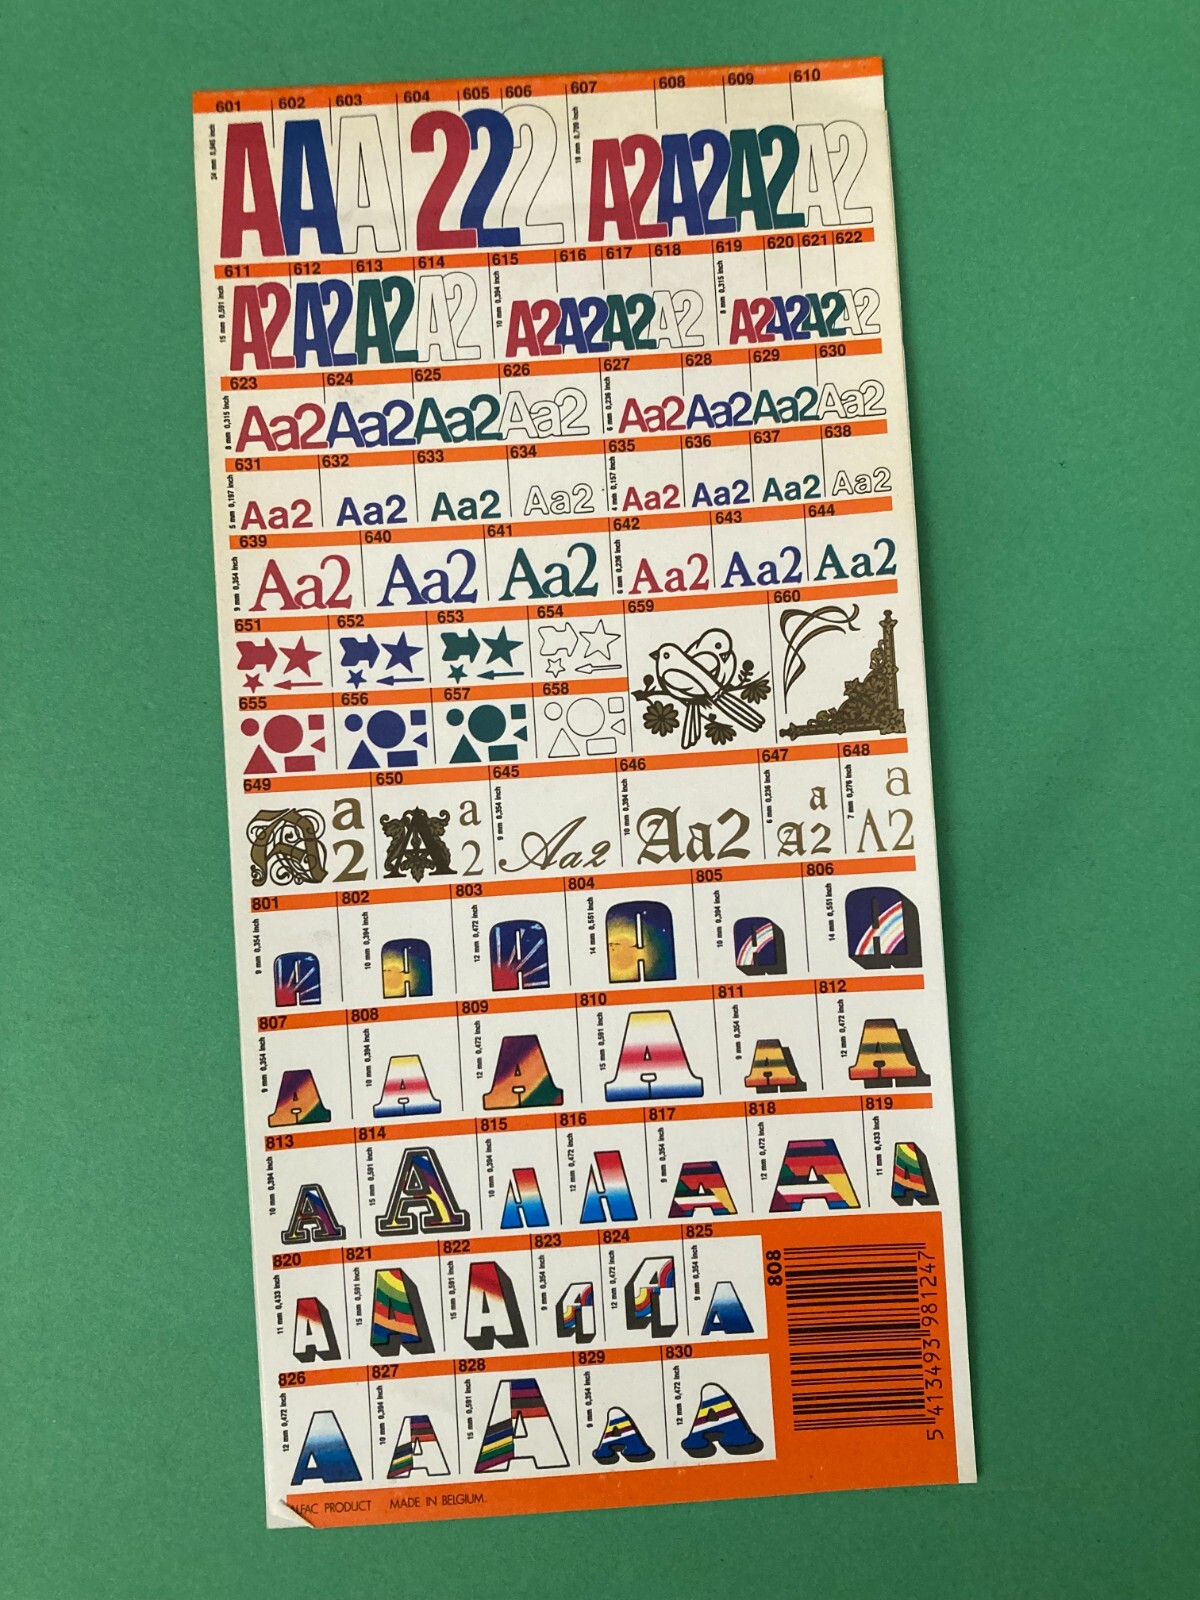 601 602 603 604 605 606 607 608 609 610
24 mm 0,945 inch AAA 222 18 mm 0,709 inch A2A2A2A2
611 612 613 614 615 616 617 618 619 620 621 622
15 mm 0,591 inch A2A2A2A2 10 mm 0,394 inch A2A2A2A2 8 mm 0,315 inch A2A2A2A2
623 624 625 626 627 628 629 630
8 mm 0,315 inch Aa2Aa2Aa2Aa2 6 mm 0,236 inch Aa2Aa2Aa2Aa2
631 632 633 634 635 636 637 638
5 mm 0,197 inch Aa2 Aa2 Aa2 Aa2 4 mm 0,157 inch Aa2 Aa2 Aa2 Aa2
639 640 641 642 643 644
9 mm 0,354 inch Aa2 Aa2 Aa2 6 mm 0,236 inch Aa2 Aa2 Aa2
651 652 653 654 659 660
655 656 657 658
649 650 645 646 647 648
A a 2 A a 2 9 mm 0,354 inch Aa2 10 mm 0,394 inch Aa2 6 mm 0,236 inch a A2 7 mm 0,276 inch a A2
801 802 803 804 805 806
9 mm 0,354 inch A 10 mm 0,394 inch A 12 mm 0,472 inch A 14 mm 0,551 inch A 10 mm 0,394 inch A 14 mm 0,551 inch A
807 808 809 810 811 812
9 mm 0,354 inch A 10 mm 0,394 inch A 12 mm 0,472 inch A 15 mm 0,591 inch A 9 mm 0,354 inch A 12 mm 0,472 inch A
813 814 815 816 817 818 819
10 mm 0,394 inch A 15 mm 0,591 inch A 10 mm 0,394 inch A 12 mm 0,472 inch A 9 mm 0,354 inch A 12 mm 0,472 inch A 11 mm 0,433 inch A
820 821 822 823 824 825
11 mm 0,433 inch A 15 mm 0,591 inch A 15 mm 0,591 inch A 9 mm 0,354 inch A 12 mm 0,472 inch A 9 mm 0,354 inch A
826 827 828 829 830
12 mm 0,472 inch A 10 mm 0,394 inch A 15 mm 0,591 inch A 9 mm 0,354 inch A 12 mm 0,472 inch A
808
5 413493 981247
PRODUCT MADE IN BELGIUM.